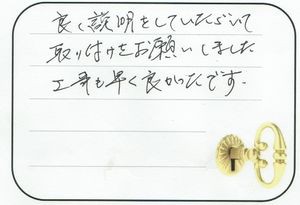 良く説明をしていただいて
取り付けをお願いしました
工事も早く良かったです.